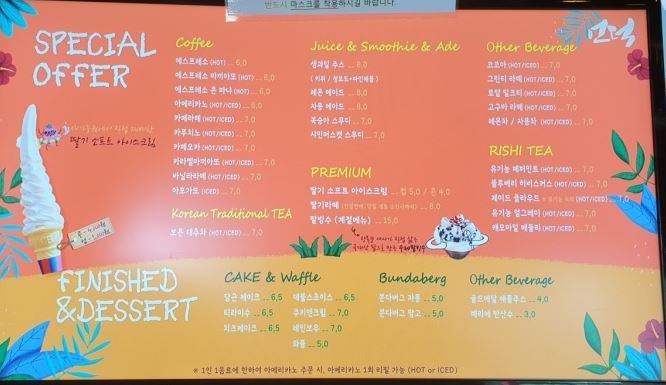 반드시 마스크를 착용하시길 바랍니다.
언덕
SPECIAL
OFFER
딸기 소프트 아이스크림
Coffee
에스프레소 (HOT) ... 6,0
에스프레소 마끼아또 (HOT) ... 6,0
에스프레소 콘 파냐 (HOT) ... 6,0
아메리카노 (HOT/ICED) ... 6,0
카페라떼 (HOT/ICED) ... 7,0
카푸치노 (HOT/ICED) ... 7,0
카페모카 (HOT/ICED) ... 7,0
카라멜마끼아또 (HOT/ICED) ... 7,0
바닐라라떼 (HOT/ICED) ... 7,0
아포가또 (ICED) ... 7,0
Korean Traditional TEA
보은 대추차 (HOT/ICED) ... 7,0
Juice & Smoothie & Ade
생과일 주스 ... 8,0
( 키위 / 청포도+파인애플 )
레몬 에이드 ... 8,0
자몽 에이드 ... 8,0
복숭아 스무디 ... 7,0
샤인머스캣 스무디 ... 7,0
PREMIUM
딸기 소프트 아이스크림 ... 컵 5,0 / 콘 4,0
딸기라떼 ... 8,0
팥빙수 (계절메뉴) ... 15,0
Other Beverage
코코아 (HOT/ICED) ... 7,0
그린티 라떼 (HOT/ICED) ... 7,0
로얄 밀크티 (HOT/ICED) ... 7,0
고구마 라떼 (HOT/ICED) ... 7,0
레몬차 / 자몽차 (HOT/ICED) ... 7,0
RISHI TEA
유기농 페퍼민트 (HOT/ICED) ... 7,0
블루베리 히비스커스 (HOT/ICED) ... 7,0
제이드 클라우드 (HOT/ICED) ... 7,0
유기농 얼그레이 (HOT/ICED) ... 7,0
캐모마일 메들리 (HOT/ICED) ... 7,0
FINISHED
&DESSERT
CAKE & Waffle
당근 케이크 ... 6,5
티라미수 ... 6,5
치즈케이크 ... 6,5
데블스초이스 ... 6,5
쿠키앤크림 ... 7,0
레인보우 ... 7,0
와플 ... 5,0
Bundaberg
분다버그 자몽 ... 5,0
분다버그 망고 ... 5,0
Other Beverage
골드메달 애플주스 ... 4,0
페리에 탄산수 ... 3,0
※ 1인 1음료에 한하여 아메리카노 주문 시, 아메리카노 1회 리필 가능 (HOT or ICED)